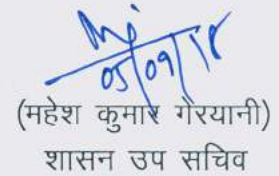 05/09/18
(महेश कुमार गैरयानी)
शासन उप सचिव